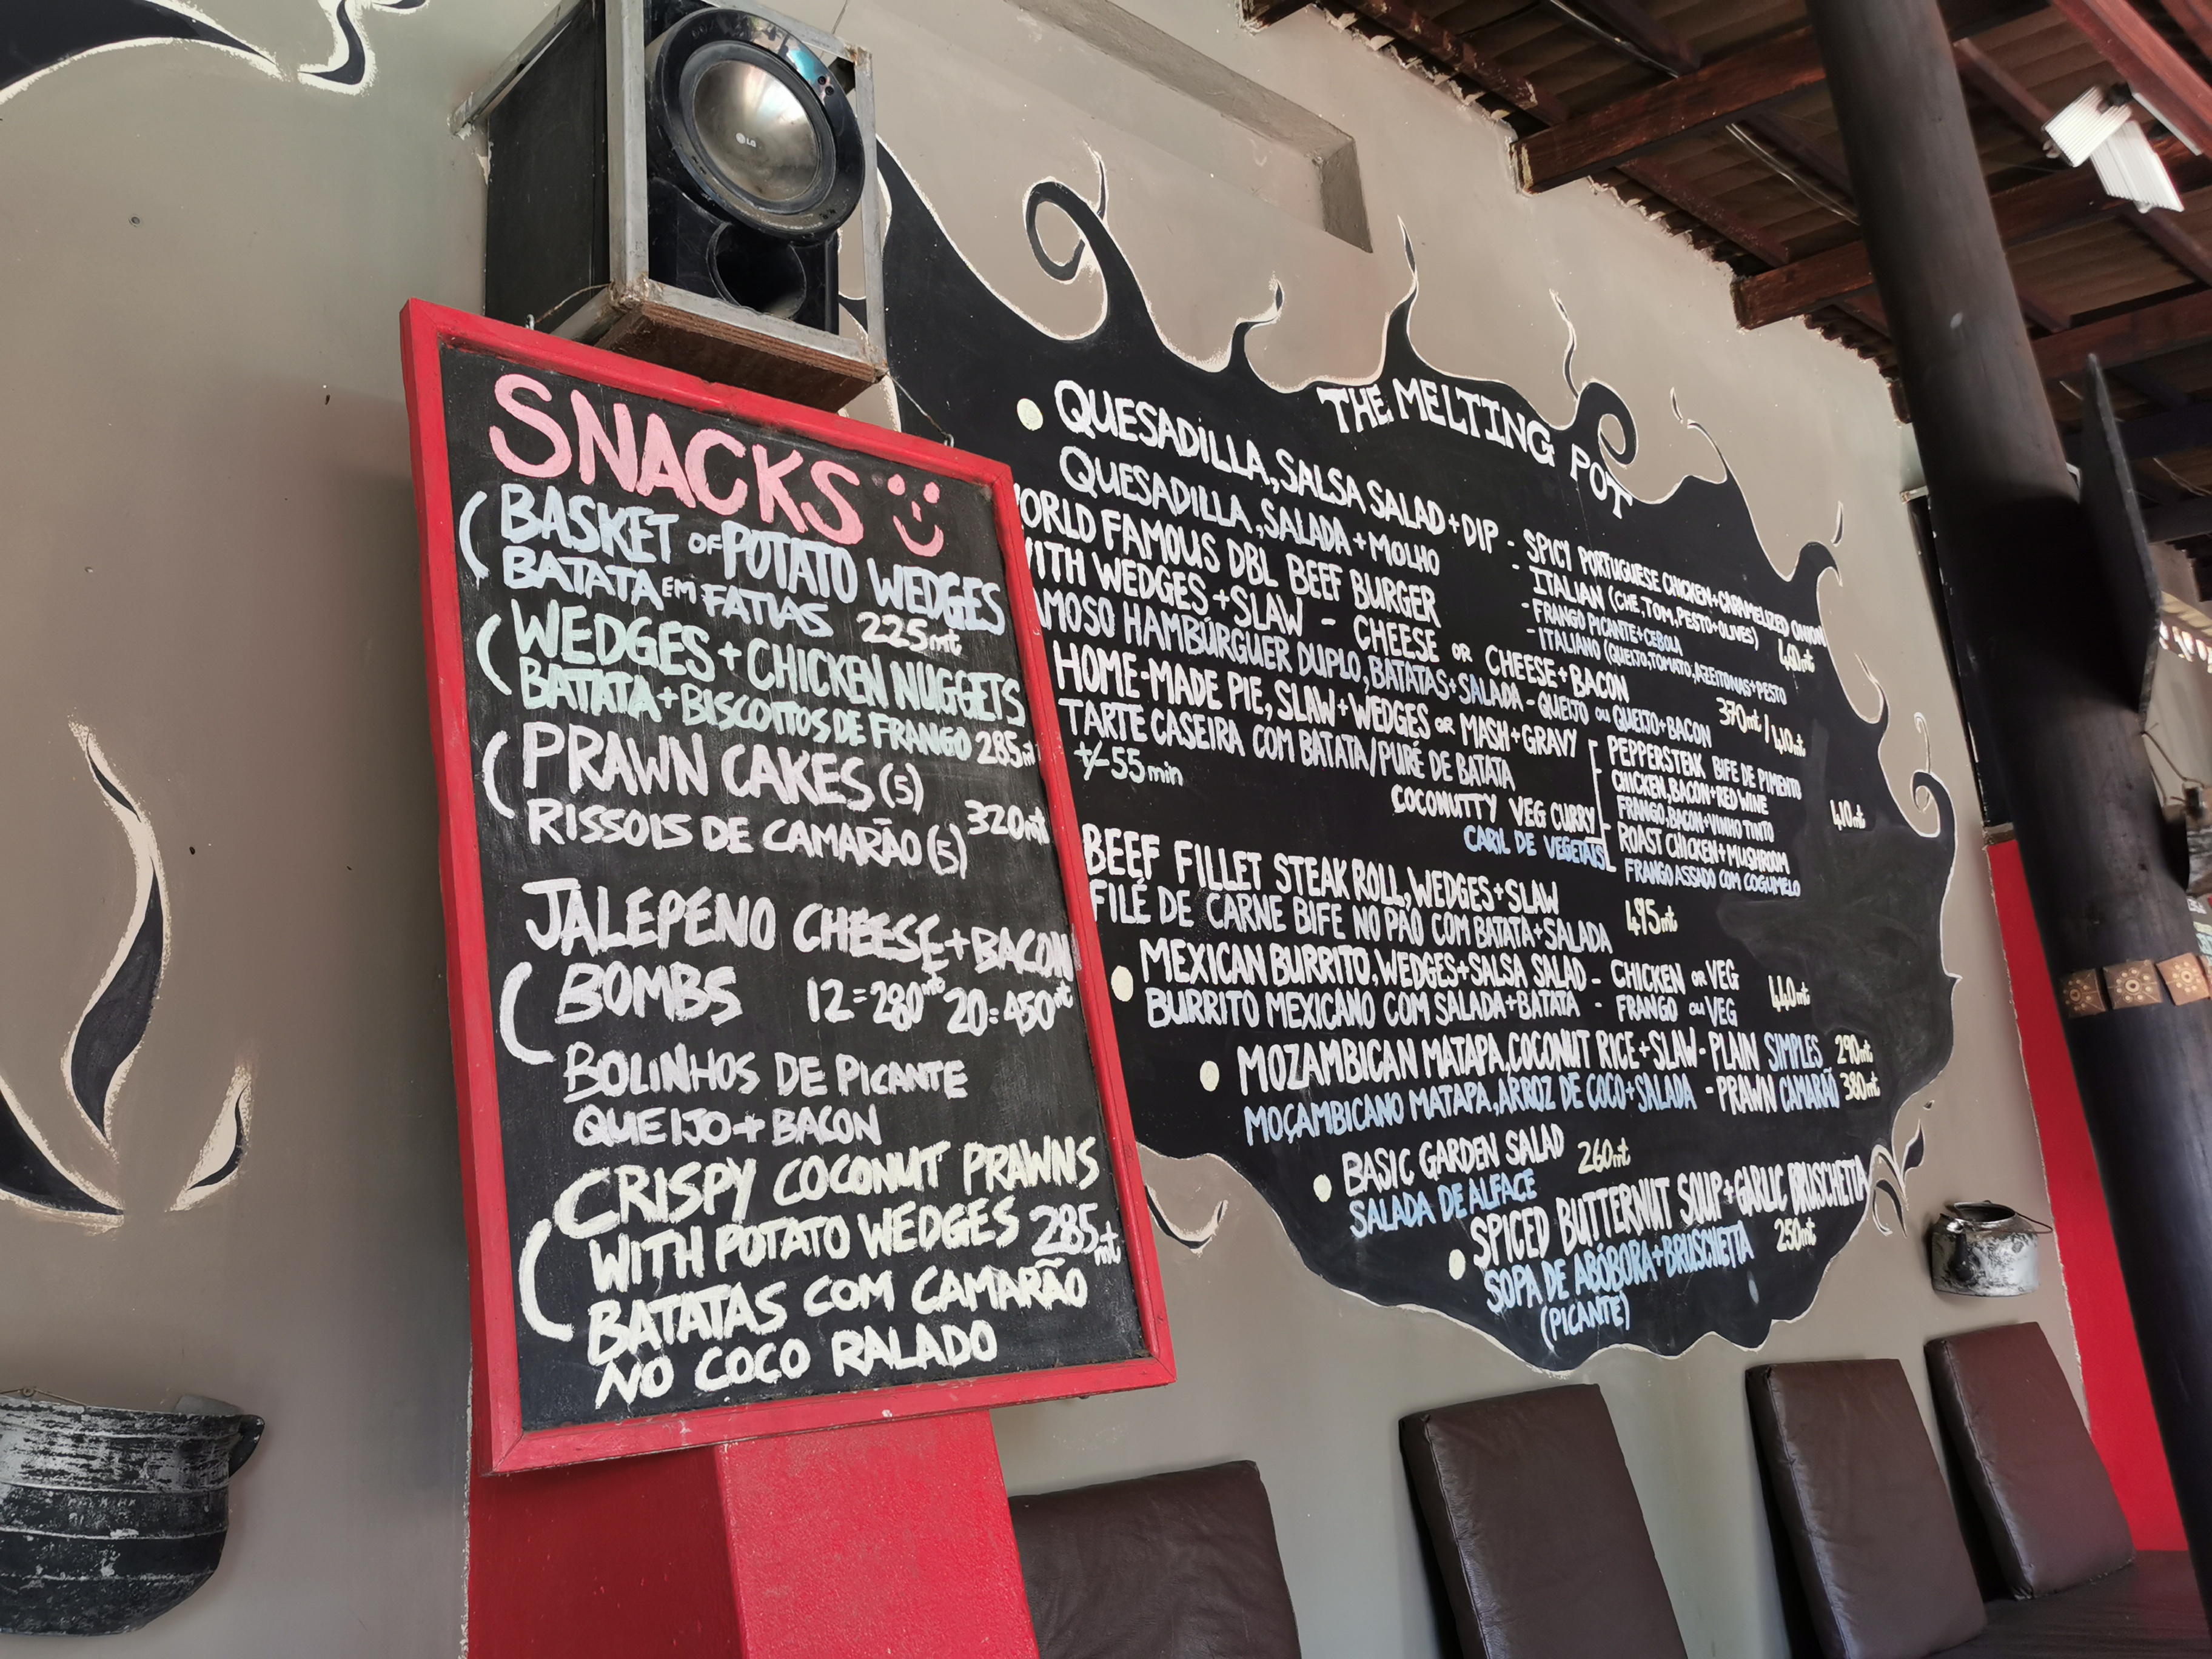 LG
SNACKS
BASKET OF POTATO WEDGES
BATATA EM FATIAS 225mt
WEDGES + CHICKEN NUGGETS
BATATA + BISCOITOS DE FRANGO 285mt
PRAWN CAKES (5)
RISSOIS DE CAMARÃO (5) 320mt
JALEPENO CHEESE + BACON
BOMBS 12=280mt 20=450mt
BOLINHOS DE PICANTE
QUEIJO + BACON
CRISPY COCONUT PRAWNS
WITH POTATO WEDGES 285mt
BATATAS COM CAMARÃO
NO COCO RALADO
THE MELTING POT
QUESADILLA, SALSA SALAD + DIP - SPICY PORTUGUESE CHICKEN + CARAMELIZED ONION
- ITALIAN (CHE, TOM, PESTO + OLIVES) 460mt
QUESADILLA, SALADA + MOLHO - FRANGO PICANTE + CEBOLA
- ITALIANO (QUEIJO, TOMATO, AZEITONAS + PESTO
ORLD FAMOUS DBL BEEF BURGER
ITH WEDGES + SLAW - CHEESE OR CHEESE + BACON 370mt / 410mt
AMOSO HAMBÚRGUER DUPLO, BATATAS + SALADA - QUEIJO OU QUEIJO + BACON
HOME-MADE PIE, SLAW + WEDGES OR MASH + GRAVY
TARTE CASEIRA COM BATATA/PURÉ DE BATATA
+/- 55min
PEPPERSTEAK BIFE DE PIMENTO
CHICKEN, BACON + RED WINE
FRANGO, BACON + VINHO TINTO 410mt
ROAST CHICKEN + MUSHROOM
FRANGO ASSADO COM COGUMELO
COCONUTTY VEG CURRY
CARIL DE VEGETAIS
BEEF FILLET STEAK ROLL, WEDGES + SLAW
FILÉ DE CARNE BIFE NO PAO COM BATATA + SALADA 495mt
MEXICAN BURRITO, WEDGES + SALSA SALAD - CHICKEN OR VEG
BURRITO MEXICANO COM SALADA + BATATA - FRANGO OU VEG 440mt
MOZAMBICAN MATAPA, COCONUT RICE + SLAW - PLAIN SIMPLES 290mt
MOÇAMBICANO MATAPA, ARROZ DE COCO + SALADA - PRAWN CAMARÃO 380mt
BASIC GARDEN SALAD 260mt
SALADA DE ALFACE
SPICED BUTTERNUT SOUP + GARLIC BRUSCHETTA
SOPA DE ABÓBORA + BRUSCHETTA 250mt
(PICANTE)